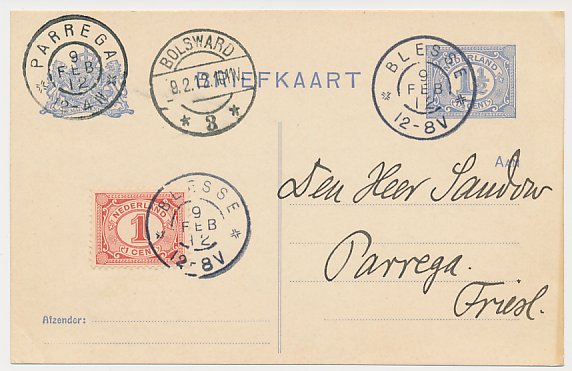 PARREGA
9
FEB
12
12-4N
BOLSWARD
9.2.12.10-11V.
* 3 *
BRIEFKAART
BLESSE
9
FEB
12
12-8V
NEDERLAND
1½
CENT
AAN
Den Heer Sandow
Parrega.
Friesl.
NEDERLAND
1
1 CENT
BLESSE
9
FEB
12
12-8V
Afzender: